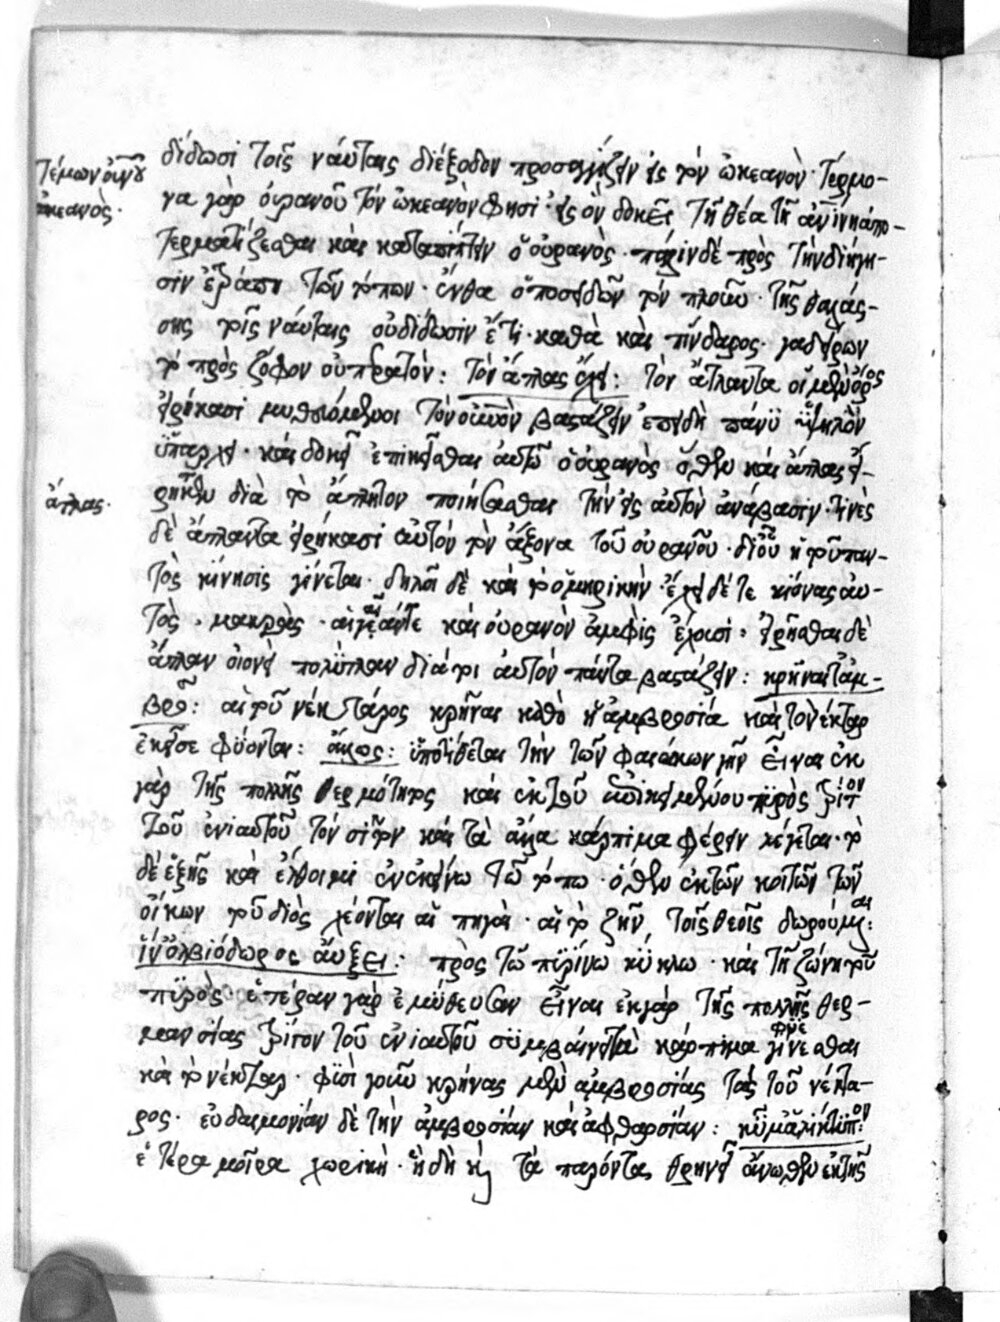 τέρμων οὐνοῦ
ὠκεανὸς·
δίδωσι τοῖς ναύταις διέξοδον προσεγγίζειν εἰς τὸν ὠκεανὸν· τέρμο-
να γὰρ οὐρανοῦ τὸν ὠκεανὸν φησὶ· εἰς ὃν δοκεῖ τῇ θέα τῇ ἀπο-
τερματίζεσθαι καὶ καταπίπτειν ὁ οὐρανὸς· πάλιν δὲ πρὸς τὴν διήγη-
σιν ἐτράπη τῶν τόπων· ἔνθα ὁ ποσειδῶν τὸν πλοῦν τῆς θαλάσ-
σης τοῖς ναύταις οὐ δίδωσιν ἔτι· καθὰ καὶ πίνδαρος· γαδείρων
τὸ πρὸς ζόφον οὐ περατὸν: τὸν ἄτλας ἔχει: τὸν ἄτλαντα οἱ μὲν ὄρος
εἰρήκασι μυθευόμενοι τὸν οὐνὸν βαστάζειν ἐπειδὴ πάνυ ὑψηλὸν
ὑπάρχει· καὶ δοκεῖ ἐπικεῖσθαι αὐτῶ ὁ οὐρανὸς ὅθεν καὶ ἄτλας εἴ-
ἄτλας·
ρηται διὰ τὸ ἄτλητον ποιεῖσθαι τὴν εἰς αὐτὸν ἀνάβασιν· τινὲς
δὲ ἄτλαντα εἰρήκασι αὐτὸν τὸν ἄξονα τοῦ οὐρανοῦ· δι οὗ ἡ τοῦ παν-
τὸς κίνησις γίνεται· δηλοῖ δὲ καὶ τὸ ὁμηρικὴν· ἔχει δέ τε κίονας αὐ-
τὸς· μακρὰς· αἳ γαῖάν τε καὶ οὐρανὸν ἀμφὶς ἔχουσι· εἰρῆσθαι δὲ
ἄτλαν οἱονεὶ πολύτλαν διά τοι αὐτὸν πάντα βαστάζειν: κρῆναί τ᾽ ἀμ-
βρο: αἱ τοῦ νέκταρος κρῆναι καθὸ ἡ ἀμβροσία καὶ τὸ νέκταρ
ἐκεῖσε φύονται: ἄλλως: ὑποτίθεται τὴν τῶν φαιάκων γῆν εἶναι ἐκ
γὰρ τῆς πολλῆς θερμότητος καὶ ἐκ τοῦ πρὸς τρίτον
τοῦ ἐνιαυτοῦ τὸν σῖτον καὶ τὰ ἄλλα κάρπιμα φέρειν λέγεται· τὸ
δὲ ἑξῆς καὶ ἔλθοιμι ἐν ἐκείνω τῶ τόπω· ὅθεν ἐκ τῶν κοιτῶν τῶν
οἴκων τοῦ διὸς χέονται αἱ πηγαὶ· αἳ τὸ ζῆν, τοῖς θεοῖς δωρούμεναι:
ἵν ὀλβιόδωρος αὔξει: πρὸς τῶ πυρίνω κύκλω· καὶ τῇ ζώνη τοῦ
πυρὸς· ἑτέραν γὰρ ἐμύθευσαν εἶναι ἐκ γὰρ τῆς πολλῆς θερ-
μανσίας τρίτον τοῦ ἐνιαυτοῦ συμβαίνει τὰ κάρπιμα γίνεσθαι
καὶ τὸ νέκταρ· φησὶ γοῦν κρήνας μὲν ἀμβροσίας τὰς τοῦ νέκτα-
ρος· εὐδαιμονίαν δὲ τὴν ἀμβροσίαν καὶ ἀφθαρσίαν:
ἑτέρα μοῖρα χωρικὴ· ἤδη τὰ παρόντα θρηνεῖ ἄνωθεν ἐκ τῆς